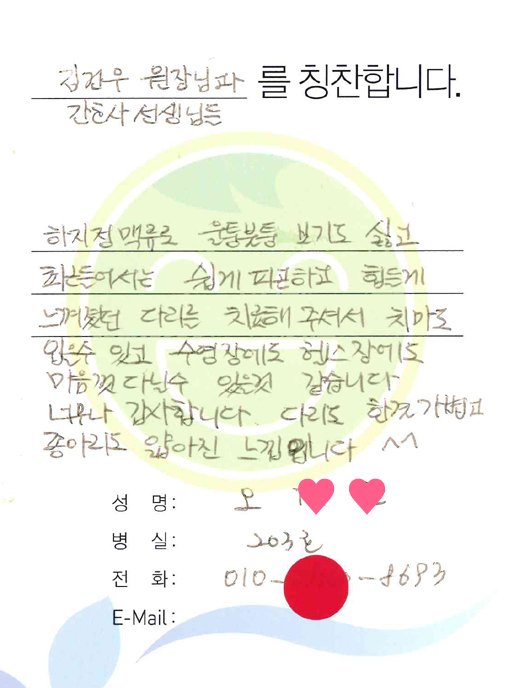 김건우 원장님과 를 칭찬합니다.
간호사 선생님들
하지정맥류로 울퉁붓퉁 보기도 싫고
최근들어서는 쉽게 피곤하고 힘들게
느껴졌던 다리를 치료해 주셔서 치마도
입을수 있고 수영장에도 헬스장에도
마음껏 다닐수 있을것 같습니다
너무나 감사합니다. 다리도 한결 가볍고
종아리도 얇아진 느낌입니다 ^^
성 명: 오
병 실: 203호
전 화: 010- -8693
E-Mail: